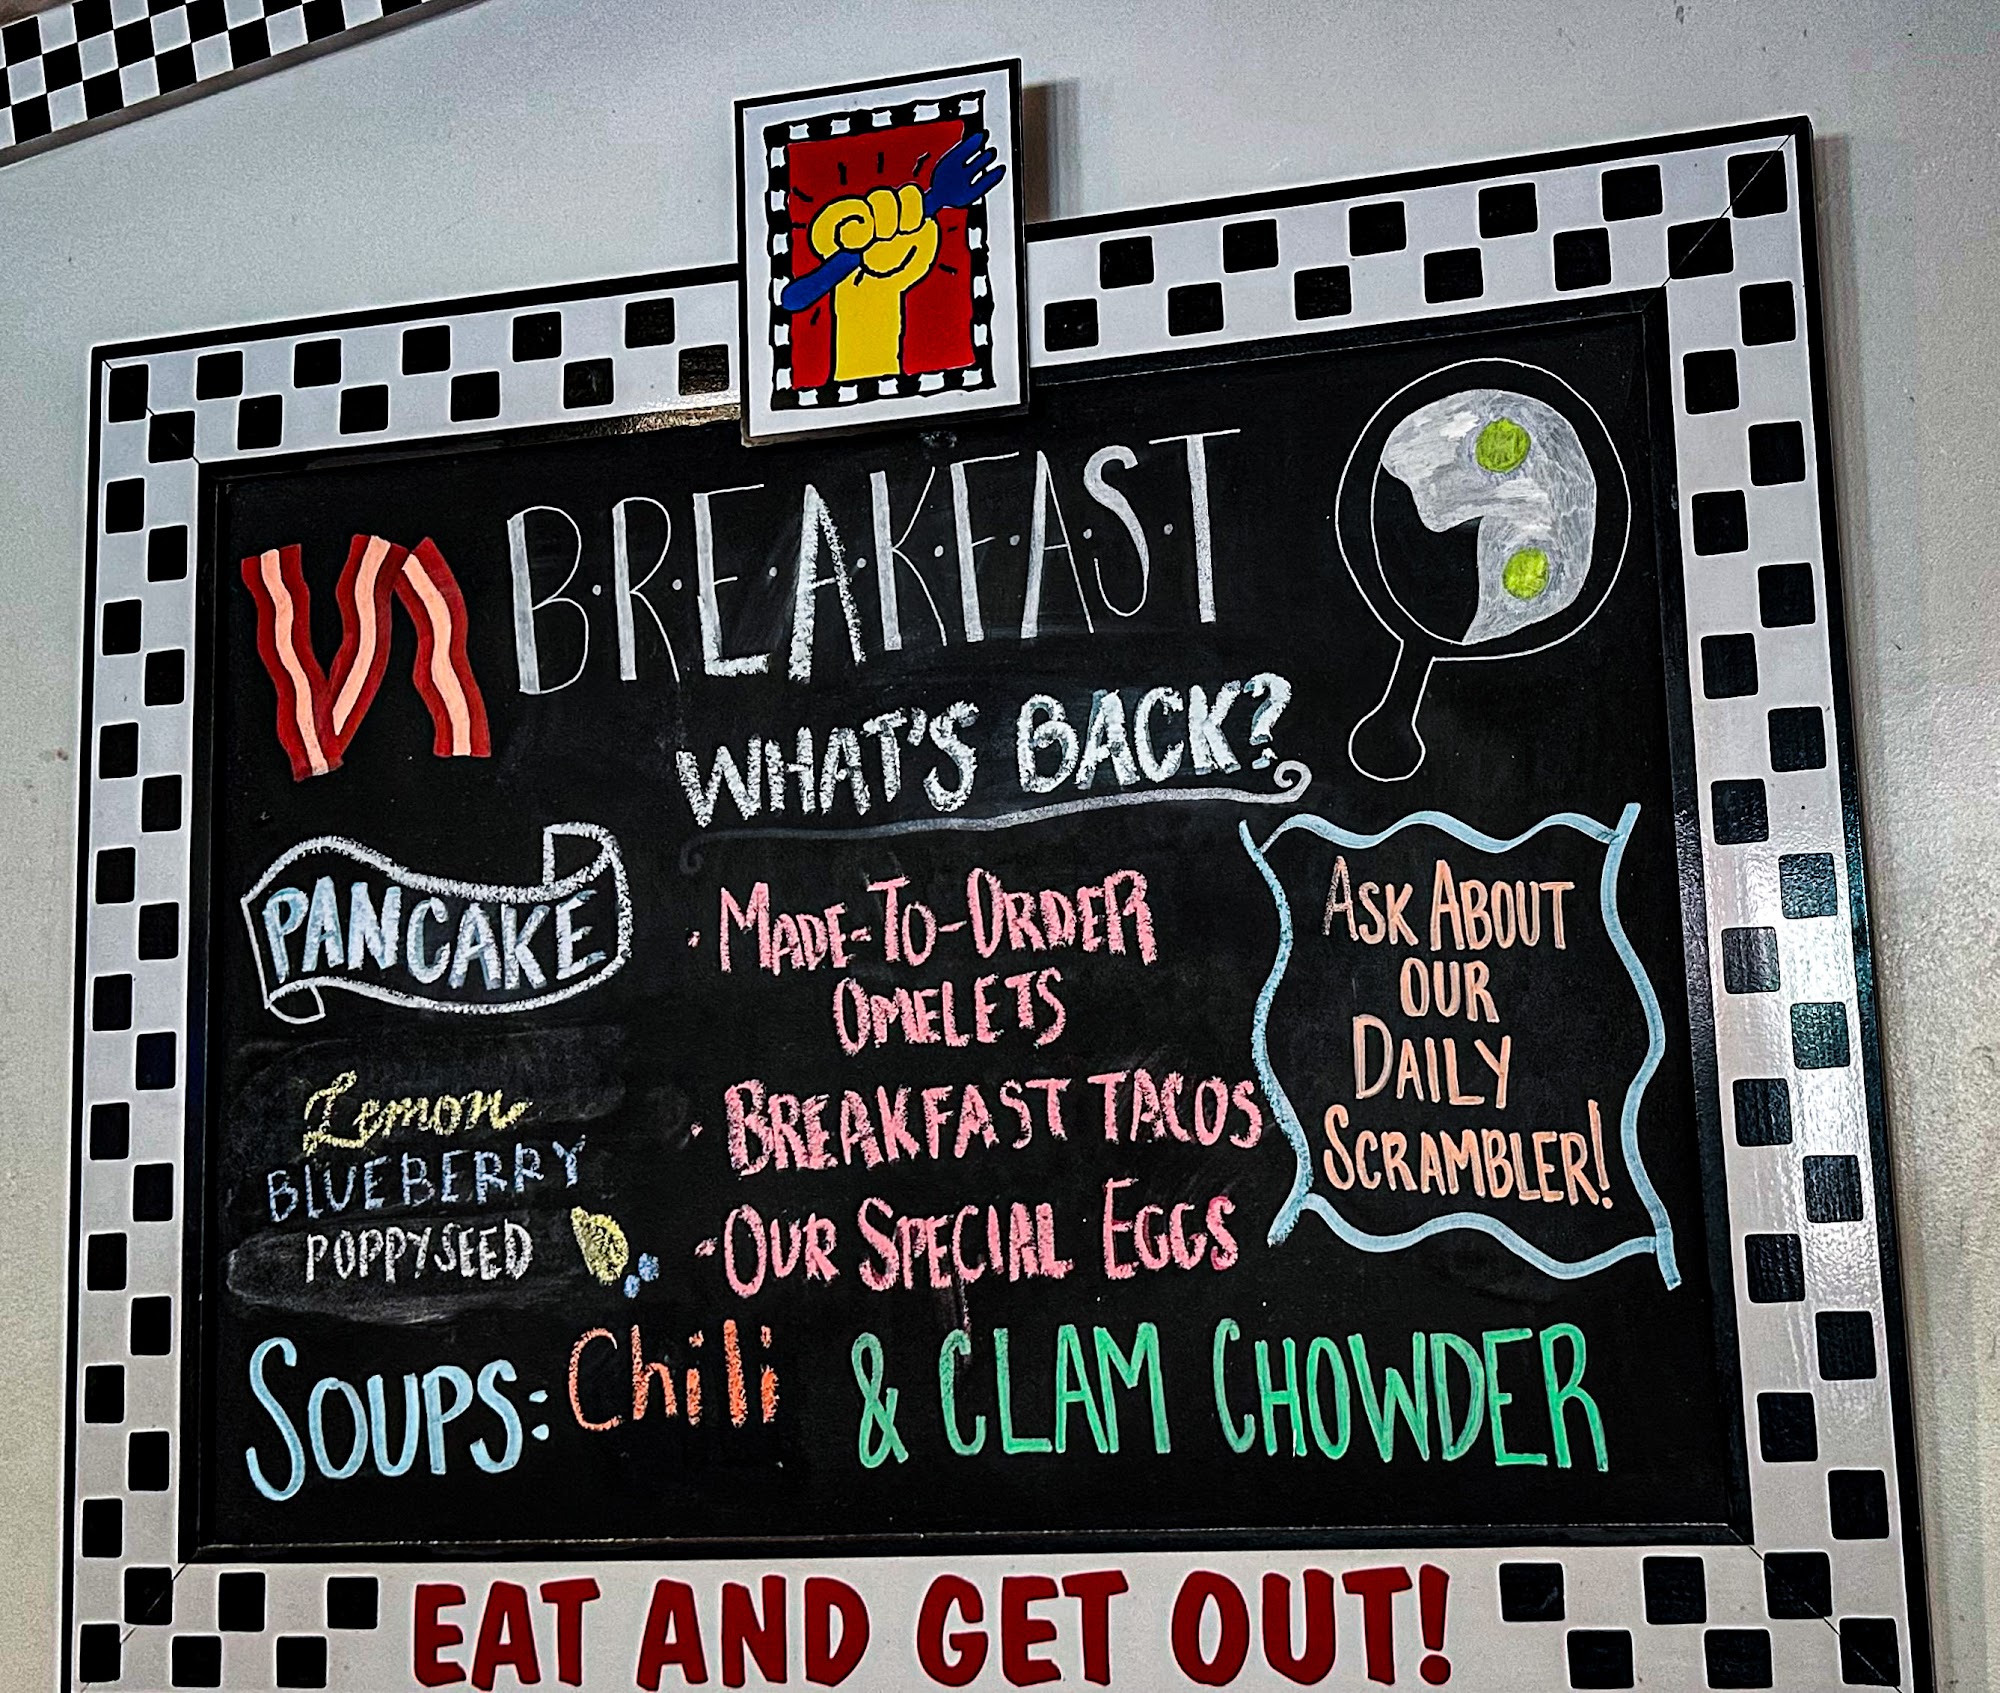 B·R·E·A·K·F·A·S·T
WHAT'S BACK?
PANCAKE
Lemon
BLUEBERRY
POPPYSEED
· MADE-TO-ORDER
OMELETS
· BREAKFAST TACOS
· OUR SPECIAL EGGS
ASK ABOUT
OUR
DAILY
SCRAMBLER!
SOUPS: Chili & CLAM CHOWDER
EAT AND GET OUT!